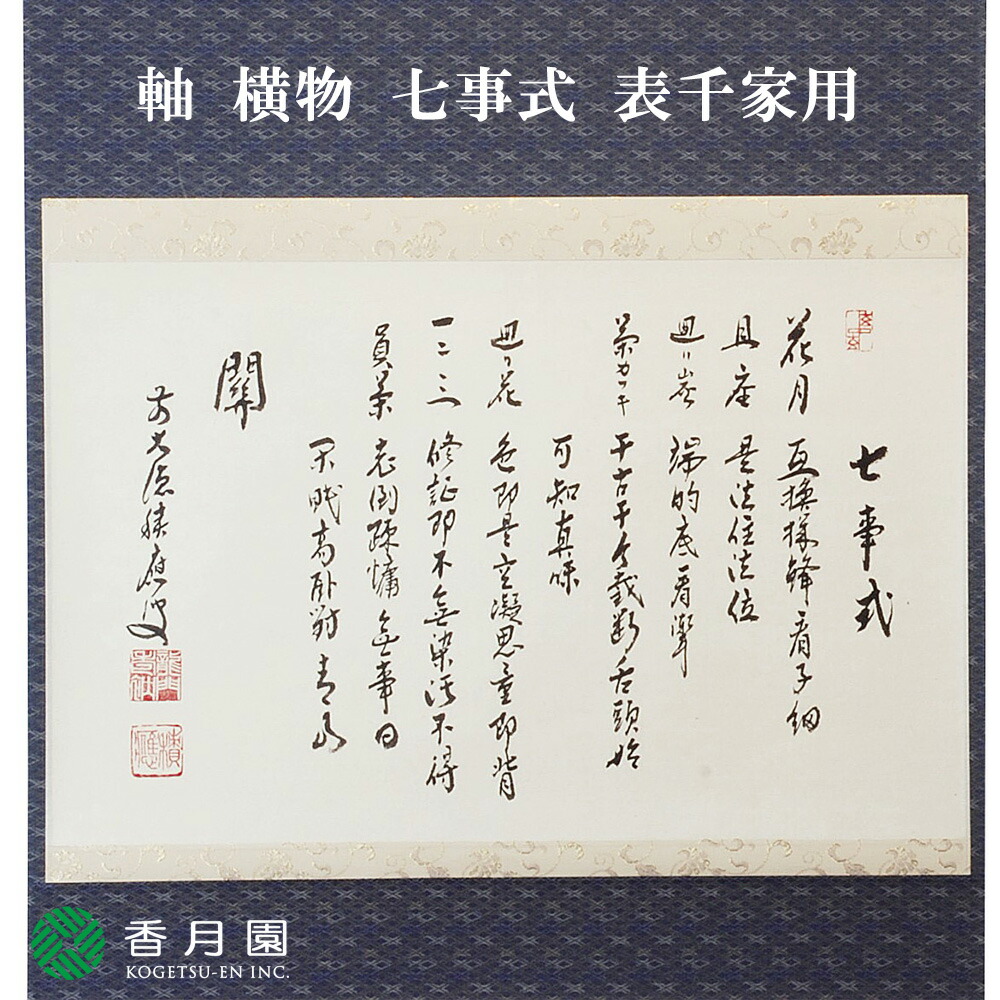 軸 横物 七事式 表千家用
七事式
花月 互換機鋒看子細
且座 是法住法位
廻リ炭 端的底看聻
茶カフキ 千古千今截断舌頭始
可知真味
廻リ花 色即是空凝思量即背
一二三 修証即不無染汚不得
員茶 老倒疎慵無事日
閑眠高臥對青山
關
前大徳積應叟
積應
香月園
KOGETSU-EN INC.